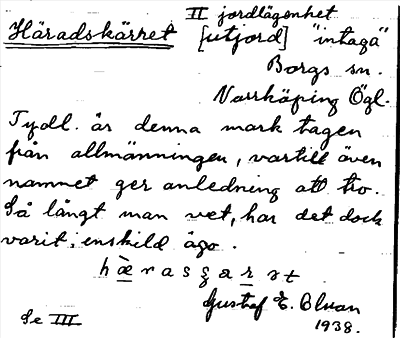 II jordlägenhet
Häradskärret [utjord] "intaga"
Borgs sn.
Norrköping Ögl.
Tydl. är denna mark tagen
från allmänningen, vartill även
namnet ger anledning att tro.
Så långt man vet, har det dock
varit enskild ägo.
Gustaf E. Olvan
Se III 1938.